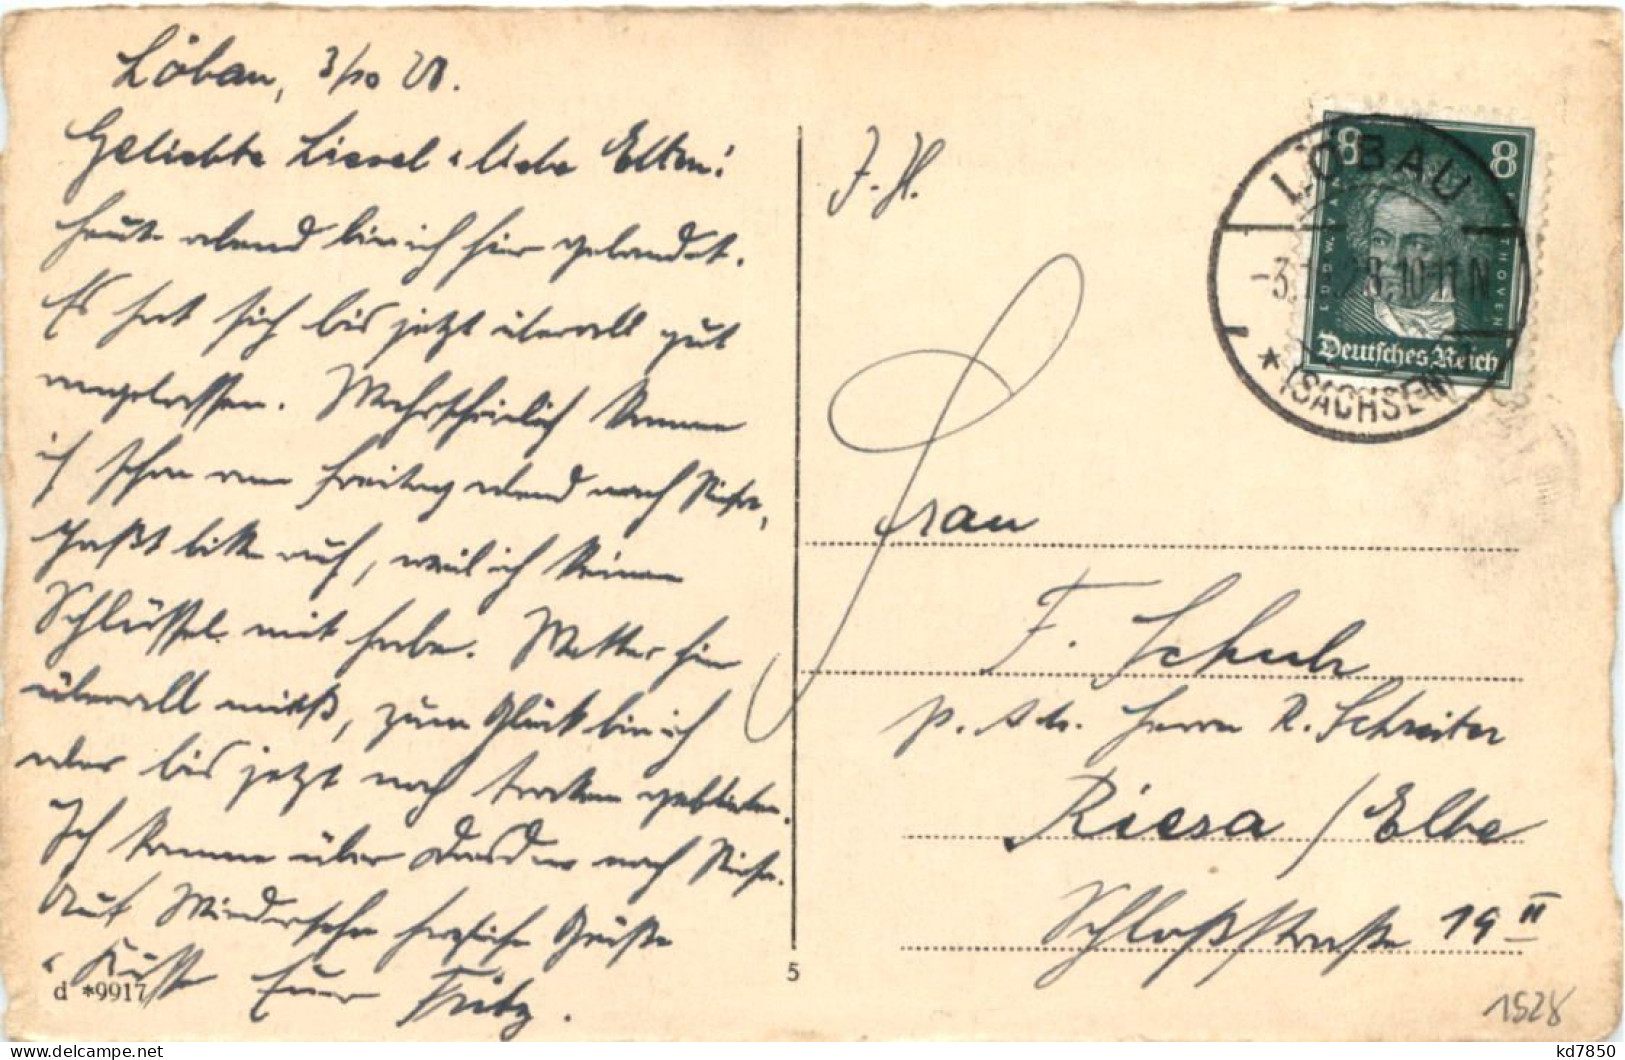 Löbau, 3/10 28.
Geliebte Liesel u. liebe Eltern!
heute abend bin ich hier gelandet.
Es hat sich bis jetzt überall gut
angelassen. Wahrscheinlich komme
ich schon am Freitag abend nach Riesa,
paßt bitte auf, weil ich keinen
Schlüssel mit habe. Wetter hier
überall mieß, zum Glück bin ich
aber bis jetzt noch trocken geblieben.
Ich komme über Dresden nach Riesa.
Auf Wiedersehn herzliche Grüße
u. Küsse Euer Fritz.
d *9917
5
J. H.
8 8
LUDW. VAN BEETHOVEN
Deutsches Reich
LÖBAU
-3. 10. 28. 10-11 N
* (SACHSEN)
Frau
F. Schuh
p. Adr. Herrn R. Schreiter
Riesa / Elbe
Schloßstraße 19 II
1928
kd7850